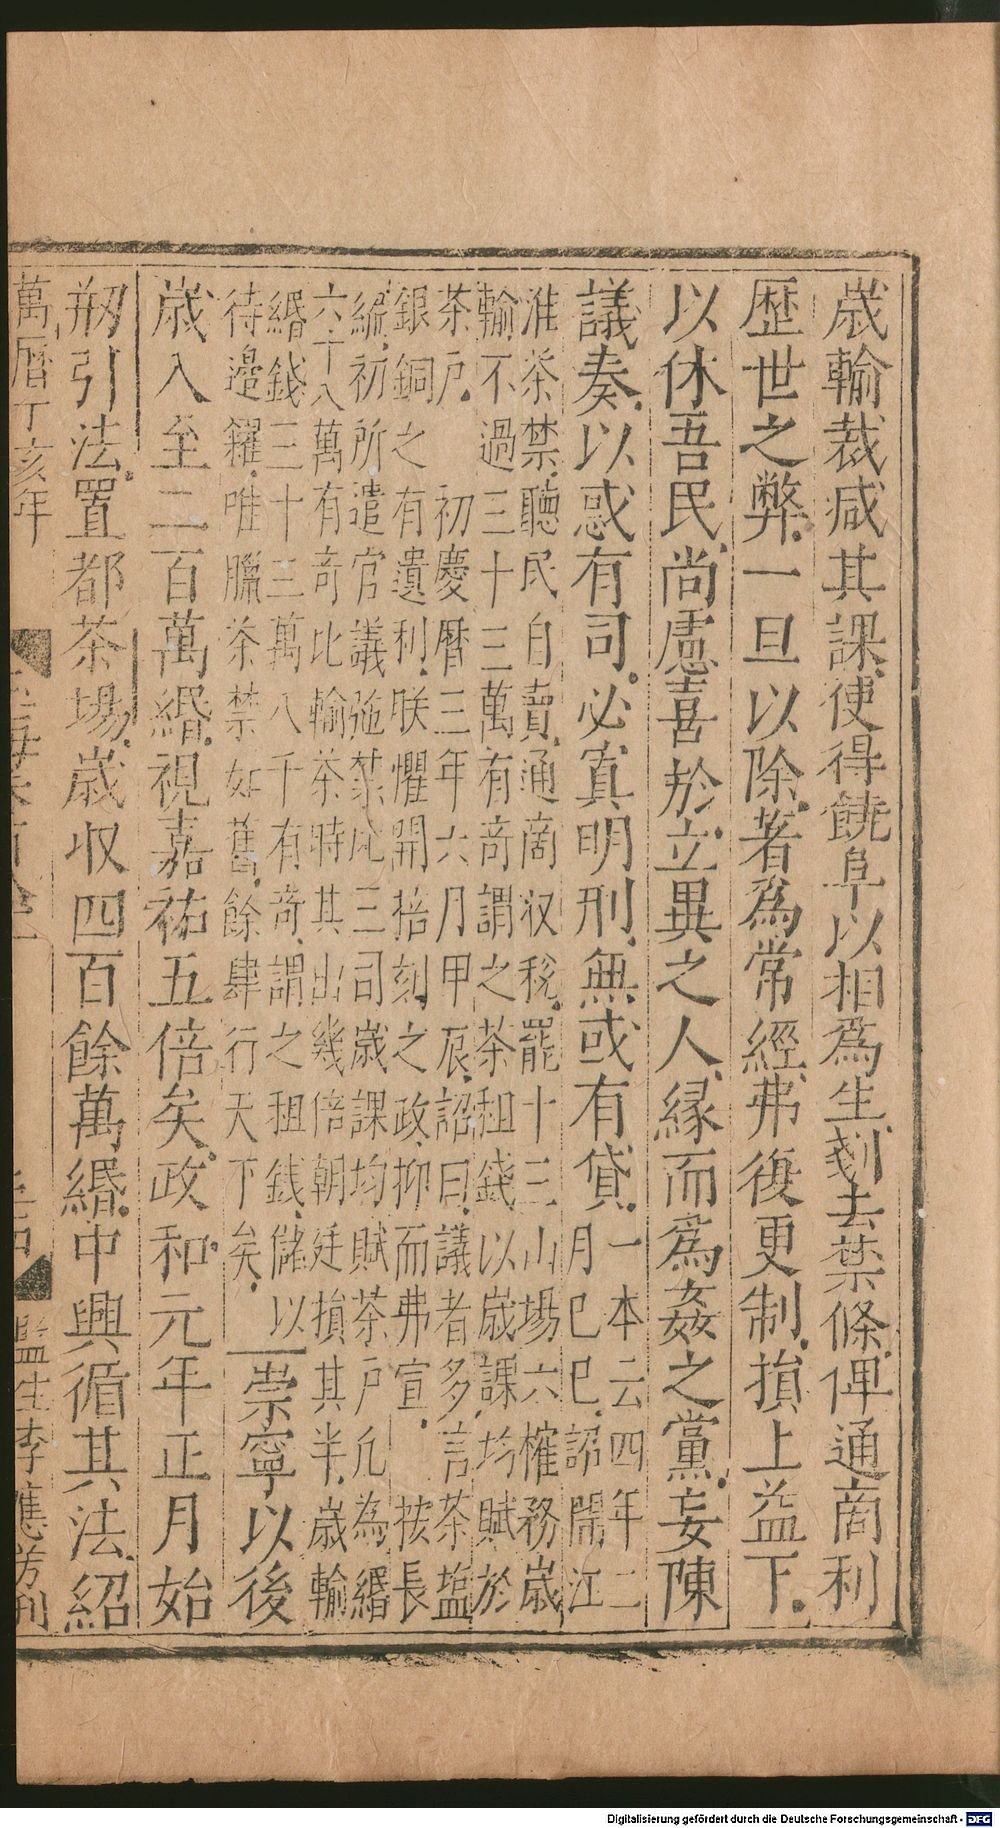 歲輸裁减其課使得饒阜以相爲生剗去禁條俾通商利
歷世之弊一旦以除著爲常經弗復更制損上益下
以休吾民尚慮喜於立異之人緣而爲姦之黨妄陳
議奏以惑有司必寘明刑無或有貸
一本云四年二
月己巳詔開江
淮茶禁聽民自賣通商收税罷十三山場六榷務歲
輸不過三十三萬有竒謂之茶租錢以歲課均賦於
茶戶 初慶曆三年六月甲辰詔曰議者多言茶塩
銀銅之有遺利朕懼開掊刻之政抑而弗宣 按長
編初所遣官議弛禁比三司歲課均賦茶戶凢為緡
六十八萬有竒比輸茶時其出幾倍朝廷損其半歲輸
緡錢三十三萬八千有竒謂之租錢儲以
待邊糴唯臘茶禁如舊餘肆行天下矣
崇寧以後
歲入至二百萬緡視嘉祐五倍矣政和元年正月始
剏引法置都茶場歲収四百餘萬緡中興循其法紹
萬曆丁亥年
監生李應芳刊
Digitalisierung gefördert durch die Deutsche Forschungsgemeinschaft - DFG